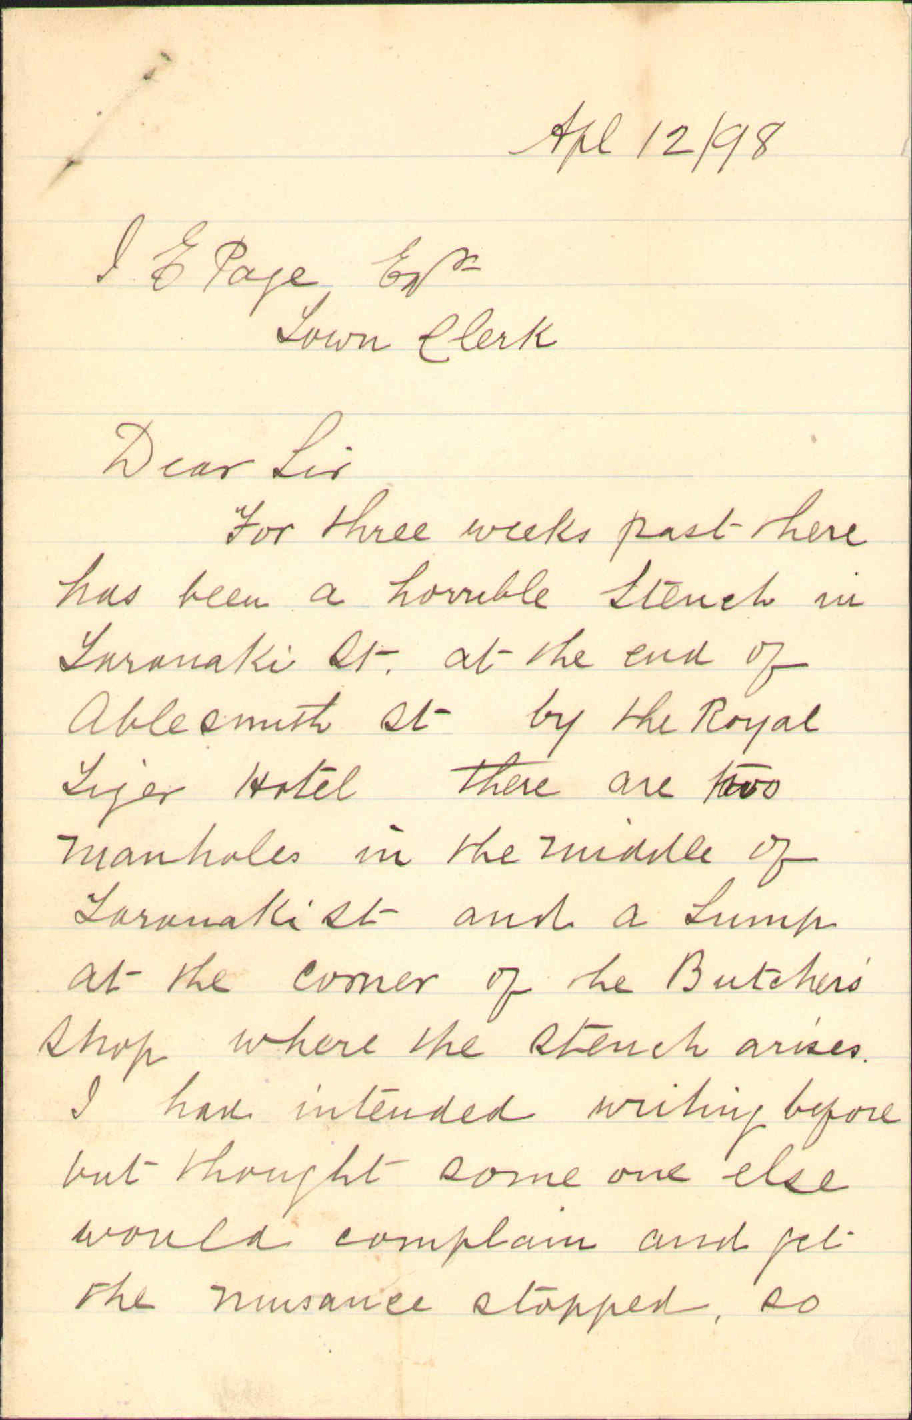 Apl 12/98
J E Page Esqr
Town Clerk
Dear Sir
For three weeks past there
has been a horrible stench in
Taranaki St. at the end of
Ablesmith St by the Royal
Tiger Hotel there are two
manholes in the middle of
Taranaki St and a Sump
at the corner of the Butchers
shop where the stench arises.
I had intended writing before
but thought some one else
would complain and get
the nuisance stopped, so